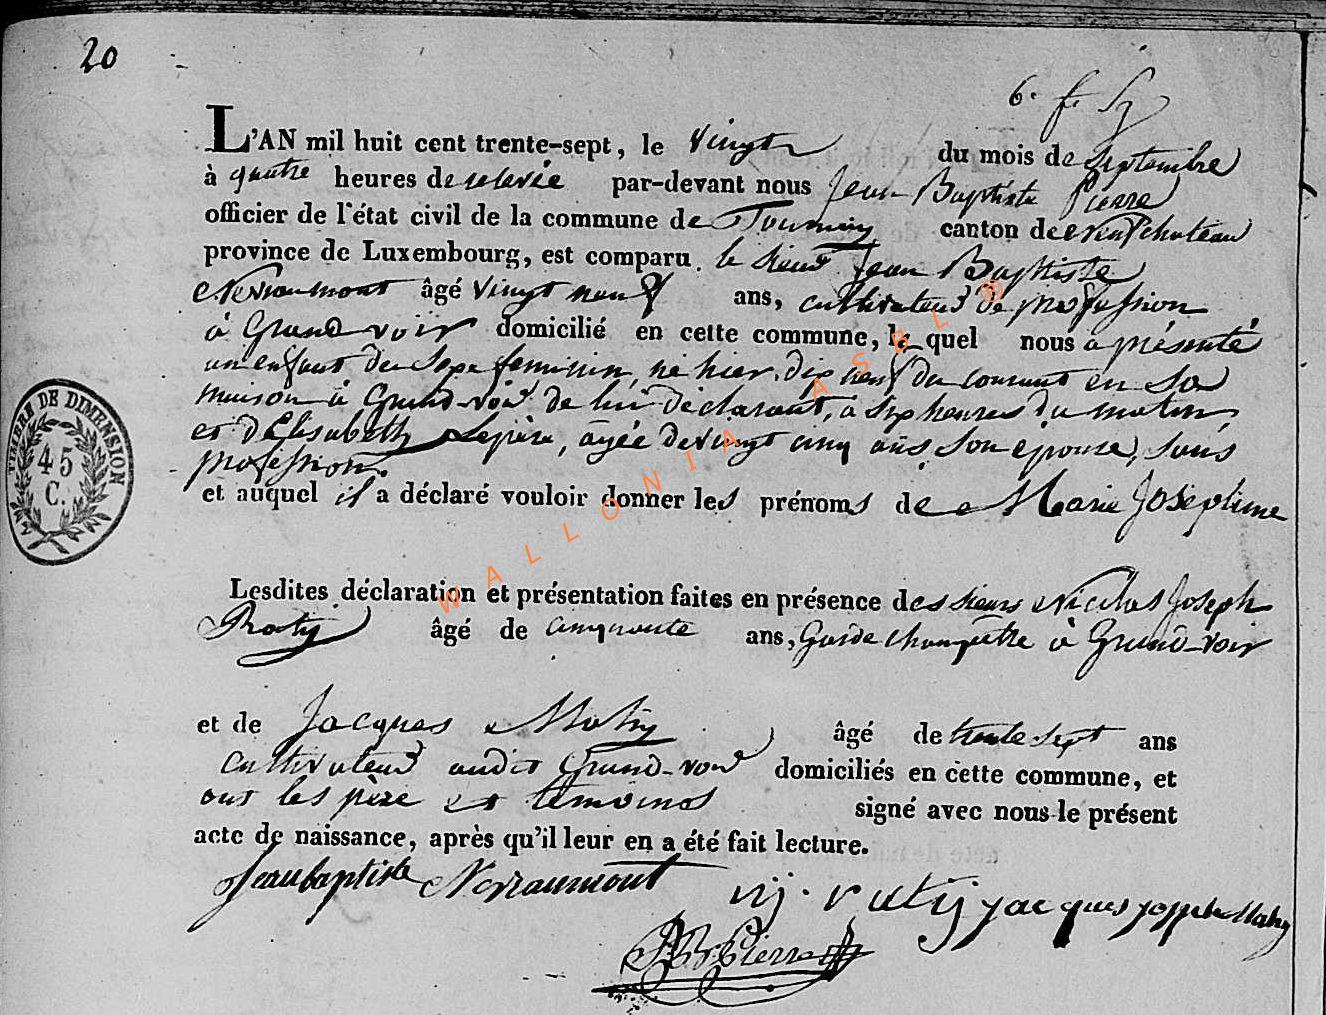 20
6e f. Sy
L'AN mil huit cent trente-sept, le vingt du mois de septembre
à quatre heures de relevée par-devant nous Jean Baptiste Pierre
officier de l'état civil de la commune de Tournay canton de neufchateau
province de Luxembourg, est comparu le sieur Jean Baptiste
Nerraumont âgé vingt neuf ans, cultivateur de profession
à Grand voir domicilié en cette commune, lequel nous a présenté
un enfant du sexe feminin, né hier, dix neuf du courant en sa
maison à Grand-voir de lui déclarant, à six heures du matin
et d'Elisabeth Lepère, agée de vingt cinq ans son épouse, sans
profession.
et auquel il a déclaré vouloir donner les prénoms de Marie Joséphine
Lesdites déclaration et présentation faites en présence des sieurs Nicolas Joseph
Roty âgé de cinquante ans, Garde champêtre à Grand-voir
et de Jacques Mohy âgé de trente sept ans
cultivateur audit Grand-voir domiciliés en cette commune, et
ont les père et temoins signé avec nous le présent
acte de naissance, après qu'il leur en a été fait lecture.
Jeanbaptiste Nerraumont nj. rutij jacques joseph Mahy
JB Pierre
TIMBRE DE DIMENSION
45
C.
WALLONIA ASBL ®